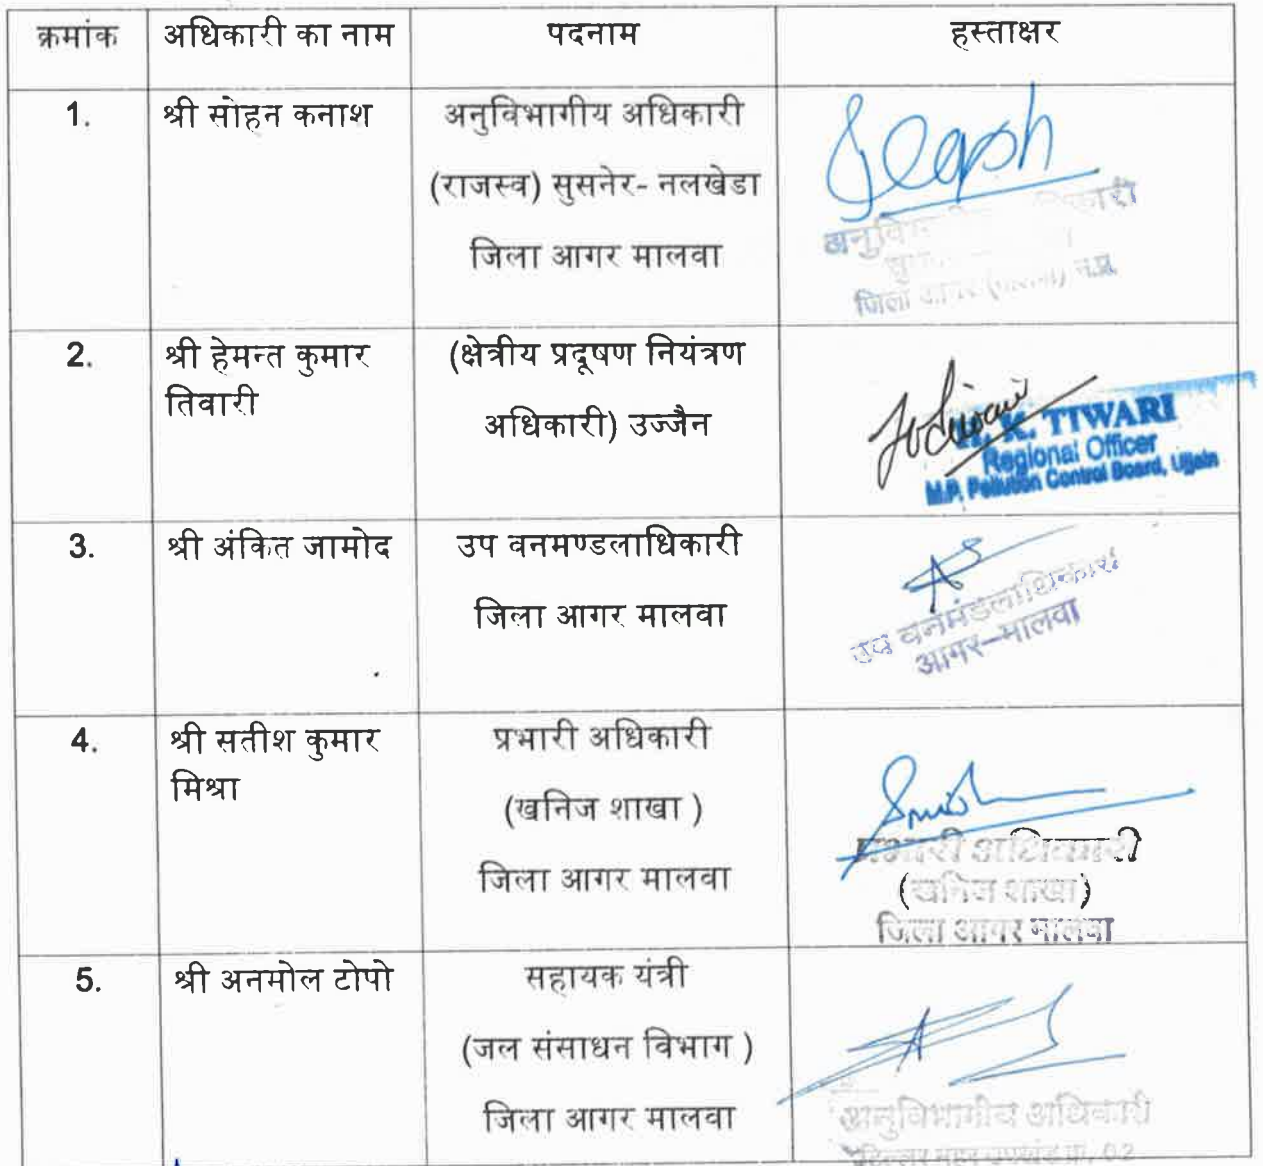 क्रमांक अधिकारी का नाम पदनाम हस्ताक्षर
1. श्री सोहन कनाश अनुविभागीय अधिकारी
(राजस्व) सुसनेर- नलखेडा
जिला आगर मालवा
जिला आगर (मालवा) म.प्र.
2. श्री हेमन्त कुमार (क्षेत्रीय प्रदूषण नियंत्रण
तिवारी अधिकारी) उज्जैन
H. K. TIWARI
Regional Officer
M.P. Pollution Control Board, Ujjain
3. श्री अंकित जामोद उप वनमण्डलाधिकारी
जिला आगर मालवा
उप वनमंडलाधिकारी
आगर-मालवा
4. श्री सतीश कुमार प्रभारी अधिकारी
मिश्रा
(खनिज शाखा )
जिला आगर मालवा
प्रभारी अधिकारी
(खनिज शाखा)
जिला आगर मालवा
5. श्री अनमोल टोपो सहायक यंत्री
(जल संसाधन विभाग )
जिला आगर मालवा
अनुविभागीय अधिकारी